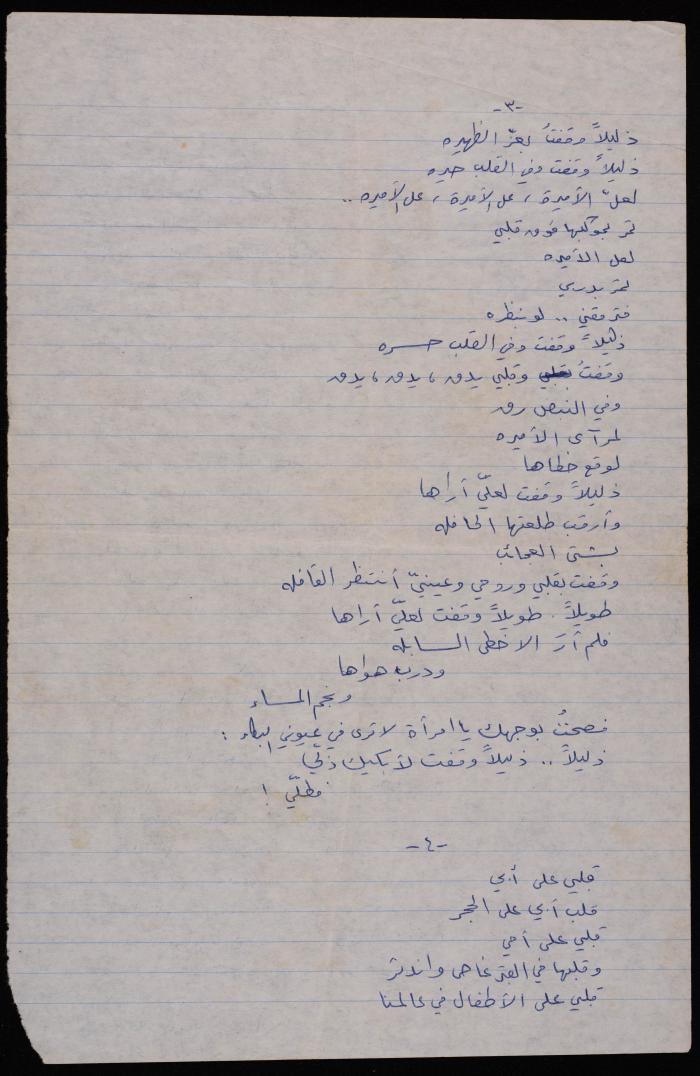 -٣-
ذليلاً وقفتُ بعزّ الظهيره
ذليلاً وقفت وفي القلب حيره
لعلّ الأميرة ، عل الأميرة ، عل الأميره ..
تمر بموكبها فوق قلبي
لعل الأميره
تمرّ بدربي
فترمقني .. لو بنظره
ذليلاً وقفت وفي القلب حسره
وقفتُ وقلبي يدق ، يدق ، يدق
وفي النبض رق
لمرآى الأميره
لوقع خطاها
ذليلاً وقفت لعلّي أراها
وأرقب طلعتها الحافله
بشتى العجائب
وقفت بقلبي وروحي وعينيّ أنتظر القافله
طويلاً . طويلاً وقفت لعلّي أراها
فلم أرَ الا خطى السابله
ودرب هواها
ونجم المساء
فصحتُ بوجهك يا امرأة لا ترى في عيوني البكاء :
ذليلاً .. ذليلاً وقفت لأبكيك ذلّي
فطلّي !
-٤-
قلبي على أبي
قلب أبي على الحجر
قلبي على أمي
وقلبها في القبر غاص واندثر
قلبي على الأطفال في عالمنا